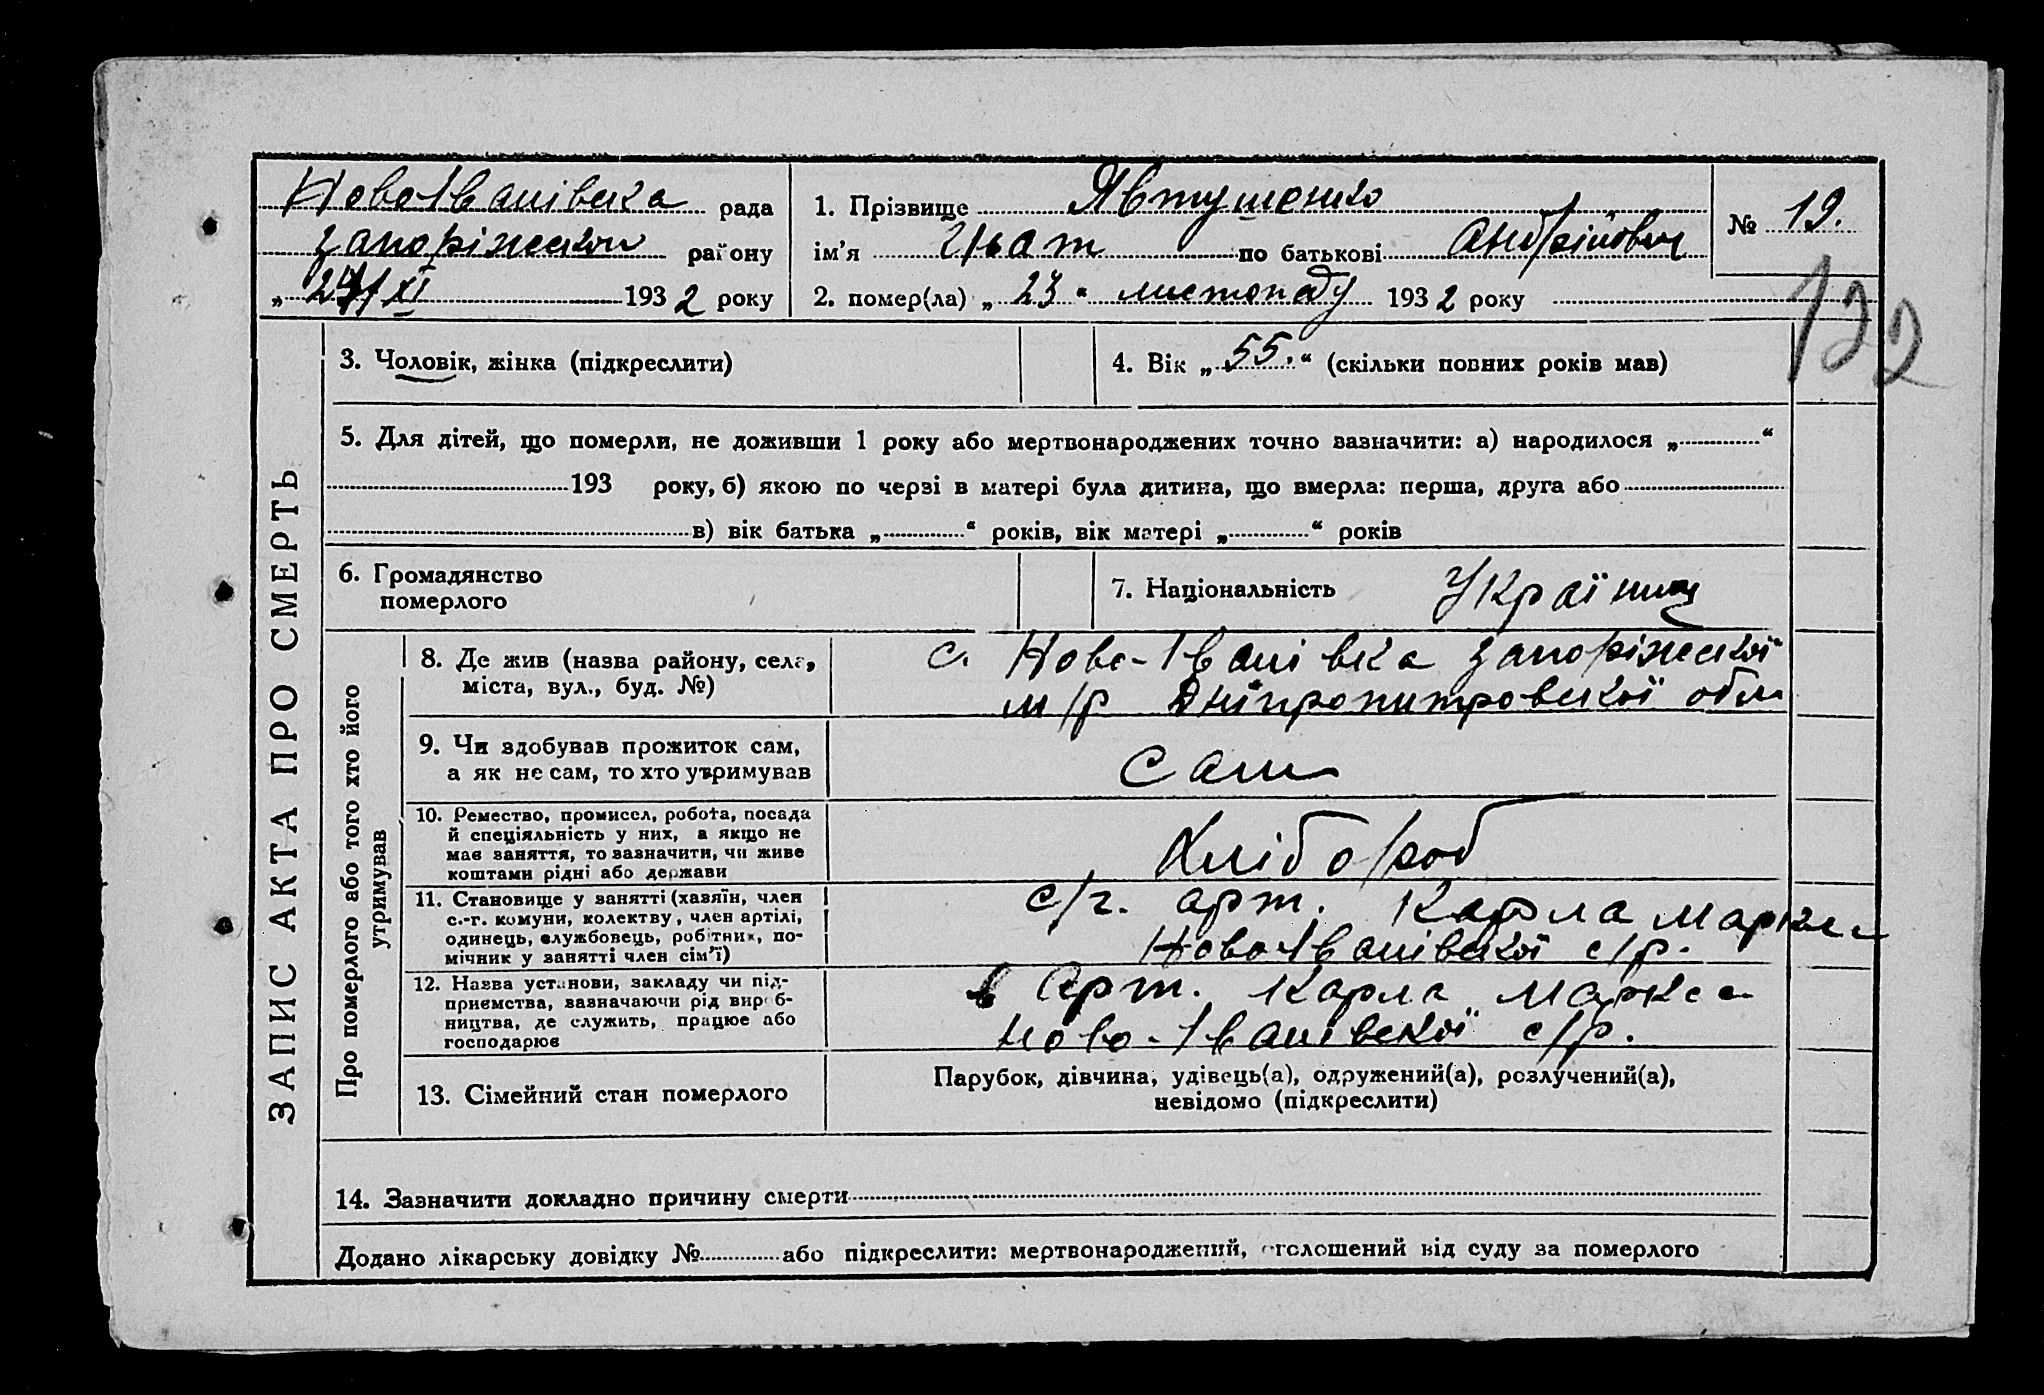 НовоІванівска рада
запоріжской району
„24/XI 1932 року
1. Прізвище Явтушенко
ім'я Гнат по батькові Андрійович
2. помер(ла) „23" листопаду 1932 року
№ 19.
122
ЗАПИС АКТА ПРО СМЕРТЬ
3. Чоловік, жінка (підкреслити)
4. Вік „55." (скільки повних років мав)
5. Для дітей, що померли, не доживши 1 року або мертвонароджених точно зазначити: а) народилося „ "
193 року, б) якою по черзі в матері була дитина, що вмерла: перша, друга або
в) вік батька „ " років, вік матері „ " років
6. Громадянство
померлого
7. Національність Українец
Про померлого або того хто його
утримував
8. Де жив (назва району, села,
міста, вул., буд. №)
с. Ново-Іванівка запоріжскої
м/р Дніпропитровскої обл
9. Чи здобував прожиток сам,
а як не сам, то хто утримував
Сам
10. Ремество, промисел, робота, посада
й спеціяльність у них, а якщо не
має заняття, то зазначити, чи живе
коштами рідні або держави
Хлібороб
11. Становище у занятті (хазяїн, член
с.-г. комуни, колективу, член артілі,
одинець, службовець, робітник, по-
мічник у занятті член сім'ї)
с/г. арт. Карла Маркса
НовоІванівскої с/р.
12. Назва установи, закладу чи під-
приємства, зазначаючи рід вироб-
ництва, де служить, працює або
господарює
в Арт. Карла Маркса
Ново-Іванівскої с/р.
13. Сімейний стан померлого
Парубок, дівчина, удівець(а), одружений(а), розлучений(а),
невідомо (підкреслити)
14. Зазначити докладно причину смерти
Додано лікарську довідку № або підкреслити: мертвонароджений, оголошений від суду за померлого